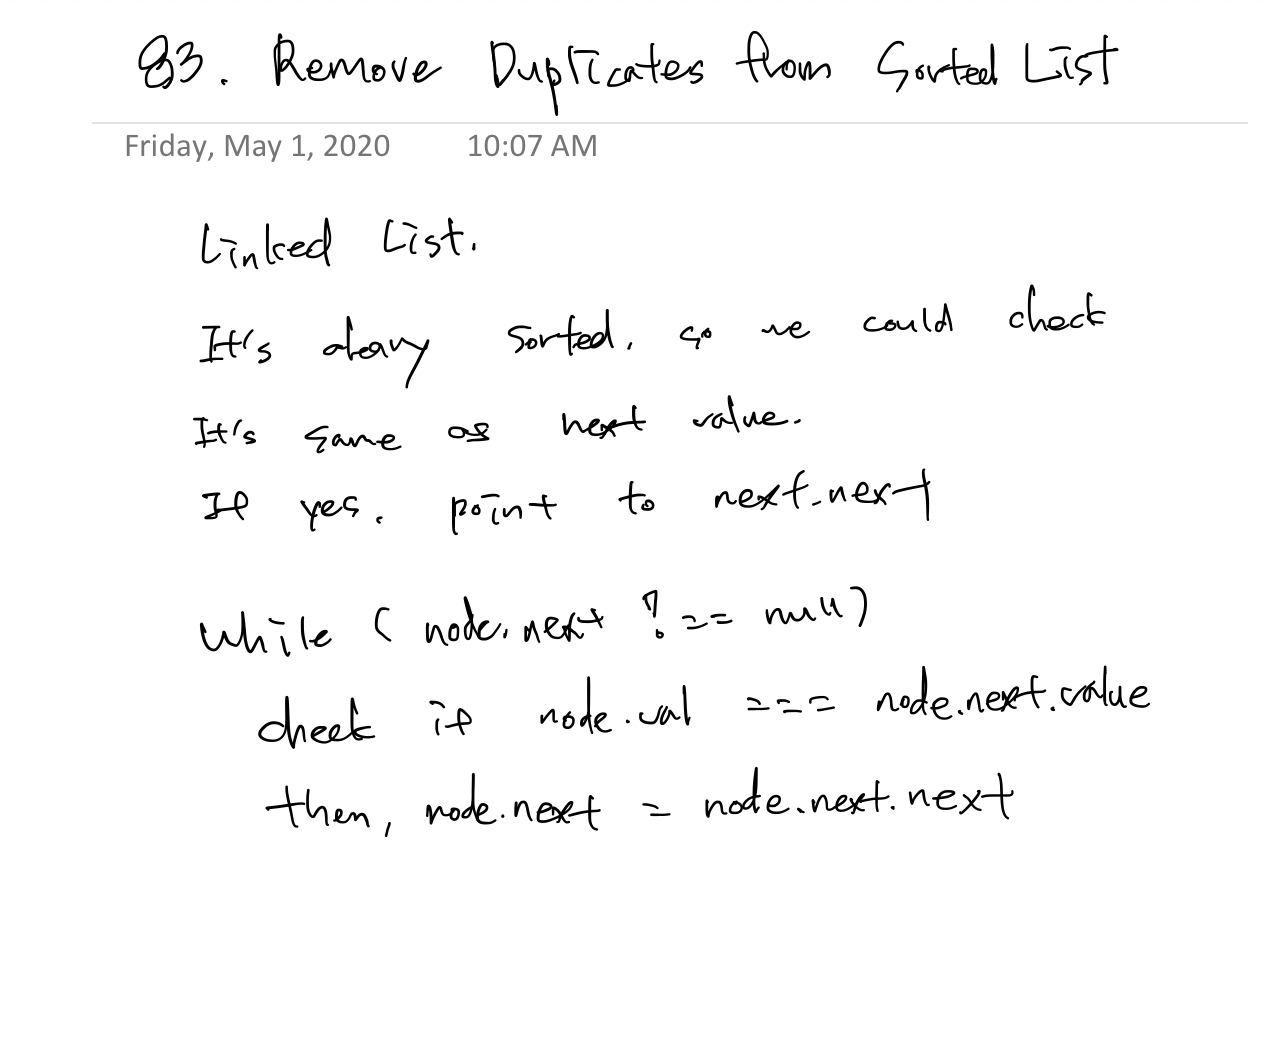 83. Remove Duplicates from Sorted List
Friday, May 1, 2020 10:07 AM
Linked List.
It's aleary sorted, so we could check
It's same as next value.
If yes. point to next.next
while (node.next !== null)
check if node.val === node.next.value
then, node.next = node.next.next